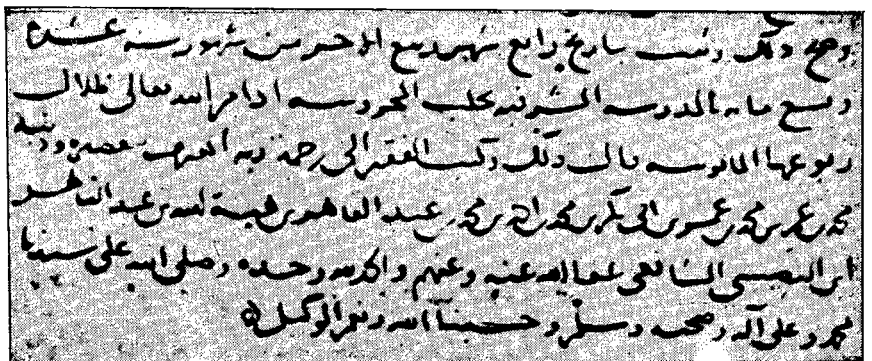 وصح ذلك وثبت بتاريخ رابع شهر ربيع الاخر من شهور سنه عشرة
وتسع مايه بالمدرسه الشرفيه بحلب المحروسه ادام الله تعالى ظلال
ربوعها المانوسه قال ذلك وكتب الفقير الى رحمة ربه المعترف بعجزه وذنبه
محمد بن عمر بن محمد بن ابى بكر بن محمد بن احمد بن محمد بن عبد القاهر بن هبة الله بن عبد القاهر
ابن النصيبى الشافعى عفا الله عنه وعنهم والحمد لله وحده وصلى الله على سيدنا
محمد وعلى آله وصحبه وسلم وحسبنا الله ونعم الوكيل